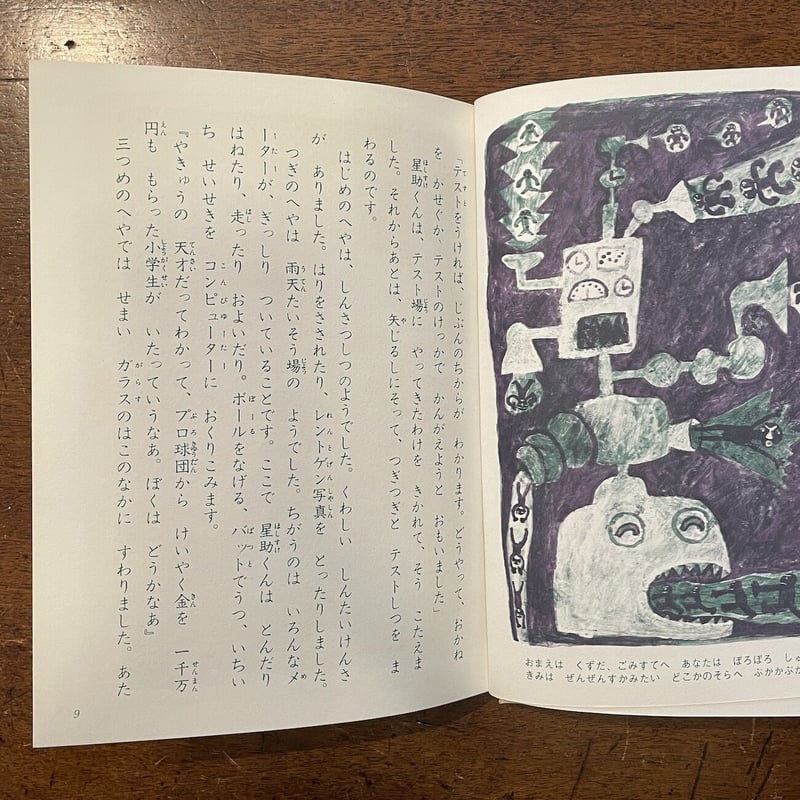 「テストをうければ、じぶんのちからが　わかります。どうやって、おかね
を　かせぐか、テストのけっかで　かんがえようと　おもいました」
星助くんは、テスト場に　やってきたわけを　きかれて、そう　こたえま
した。それからあとは、矢じるしにそって、つぎつぎと　テストしつを　ま
わるのです。
はじめのへやは、しんさつしつのようでした。くわしい　しんたいけんさ
が　ありました。はりをさされたり、レントゲン写真を　とったりしました。
つぎのへやは　雨天たいそう場の　ようでした。ちがうのは　いろんなメ
ーターが、ぎっしり　ついていることです。ここで　星助くんは　とんだり
はねたり、走ったり　およいだり。ボールをなげる、バットでうつ、いちい
ち　せいせきを　コンピューターに　おくりこみます。
『やきゅうの　天才だってわかって、プロ球団から　けいやく金を　一千万
円も　もらった小学生が　いたっていうなあ。ぼくは　どうかなあ』
三つめのへやでは　せまい　ガラスのはこのなかに　すわりました。あた
9
おまえは　くずだ、ごみすてへ　あなたは　ぼろぼろ　しゅ
きみは　ぜんぜんすかみたい　どこかのそらへ　ぷかかぷか